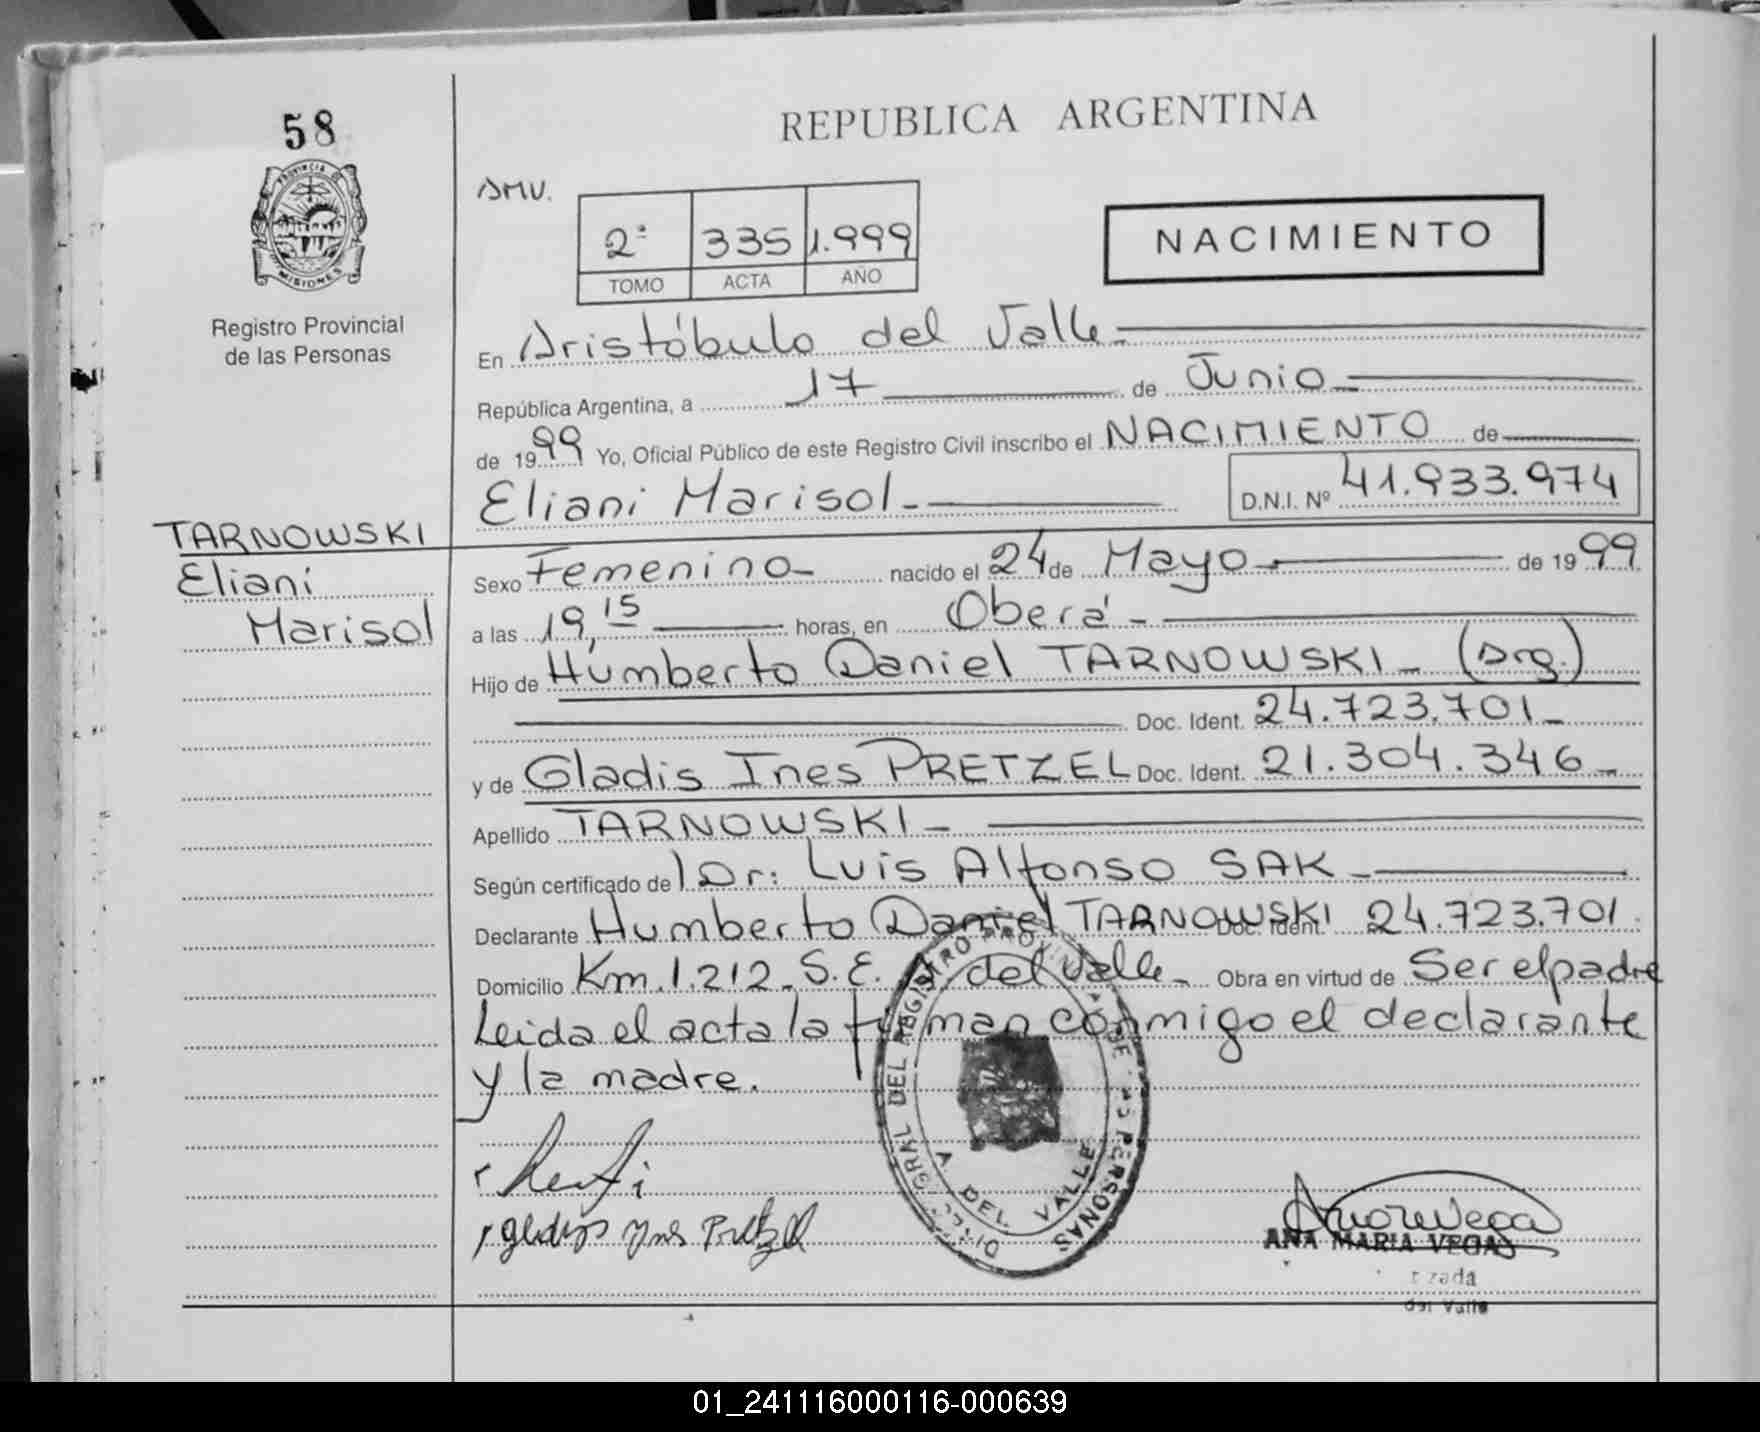 58
REPUBLICA ARGENTINA
PROVINCIA DE
MISIONES
Registro Provincial
de las Personas
2ª 335 1.999
TOMO ACTA AÑO
NACIMIENTO
En Aristóbulo del Valle.
República Argentina, a 17 de Junio
de 1999 Yo, Oficial Público de este Registro Civil inscribo el NACIMIENTO de
Eliani Marisol D.N.I. Nº 41.933.974
TARNOWSKI
Eliani
Marisol
Sexo Femenino nacido el 24 de Mayo de 1999
a las 19,15 horas, en Oberá
Hijo de Humberto Daniel TARNOWSKI (Arg.)
Doc. Ident. 24.723.701
y de Gladis Ines PRETZEL Doc. Ident. 21.304.346
Apellido TARNOWSKI
Según certificado del Dr: Luis Alfonso SAK
Declarante Humberto Daniel TARNOWSKI Doc. Ident. 24.723.701.
Domicilio Km. 1.212. S.E. A. del Valle Obra en virtud de Ser el padre
Leida el acta la firman conmigo el declarante
y la madre.
DEL REGISTRO PROVINCIAL DE LAS PERSONAS
A. DEL VALLE
gladys ynes Pretzel
ANA MARIA VEGA
del Valle
01_241116000116-000639